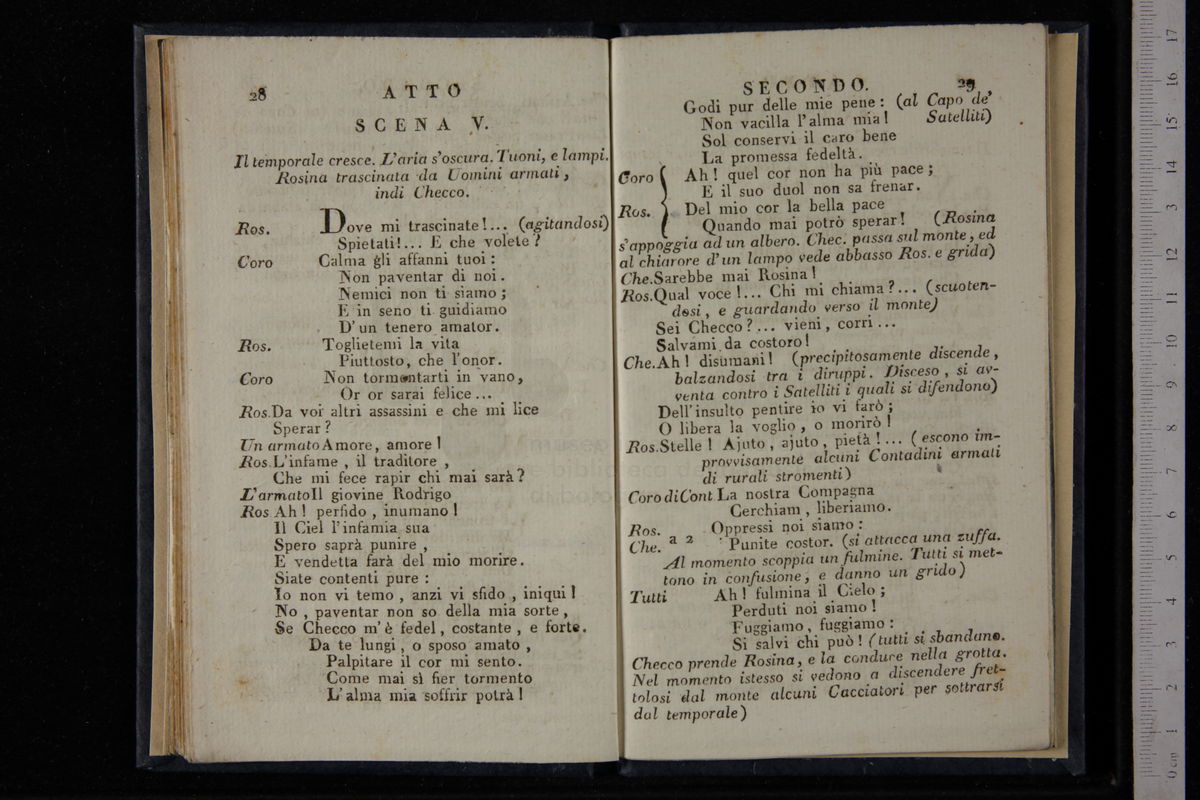 28 ATTO
SCENA V.
Il temporale cresce. L'aria s'oscura. Tuoni, e lampi.
Rosina trascinata da Uomini armati,
indi Checco.
Ros. Dove mi trascinate!... (agitandosi)
Spietati!... E che volete?
Coro Calma gli affanni tuoi:
Non paventar di noi.
Nemici non ti siamo;
E in seno ti guidiamo
D'un tenero amator.
Ros. Toglietemi la vita
Piuttosto, che l'onor.
Coro Non tormentarti in vano,
Or or sarai felice...
Ros. Da voi altri assassini e che mi lice
Sperar?
Un armato Amore, amore!
Ros. L'infame, il traditore,
Che mi fece rapir chi mai sarà?
L'armato Il giovine Rodrigo
Ros Ah! perfido, inumano!
Il Ciel l'infamia sua
Spero saprà punire,
E vendetta farà del mio morire.
Siate contenti pure:
Io non vi temo, anzi vi sfido, iniqui!
No, paventar non so della mia sorte,
Se Checco m'è fedel, costante, e forte.
Da te lungi, o sposo amato,
Palpitare il cor mi sento.
Come mai sì fier tormento
L'alma mia soffrir potrà!
SECONDO. 29
Godi pur delle mie pene: (al Capo de'
Non vacilla l'alma mia! Satelliti)
Sol conservi il caro bene
La promessa fedeltà.
Coro Ah! quel cor non ha più pace;
E il suo duol non sa frenar.
Ros. Del mio cor la bella pace
Quando mai potrò sperar! (Rosina
s'appoggia ad un albero. Chec. passa sul monte, ed
al chiarore d'un lampo vede abbasso Ros. e grida)
Che. Sarebbe mai Rosina!
Ros. Qual voce!... Chi mi chiama?... (scuoten-
dosi, e guardando verso il monte)
Sei Checco?... vieni, corri...
Salvami da costoro!
Che. Ah! disumani! (precipitosamente discende,
balzandosi tra i diruppi. Disceso, si av-
venta contro i Satelliti i quali si difendono)
Dell'insulto pentire io vi farò;
O libera la voglio, o morirò!
Ros. Stelle! Ajuto, ajuto, pietà!... (escono im-
provvisamente alcuni Contadini armati
di rurali stromenti)
Coro di Cont. La nostra Compagna
Cerchiam, liberiamo.
Ros. Oppressi noi siamo:
Che. a 2 Punite costor. (si attacca una zuffa.
Al momento scoppia un fulmine. Tutti si met-
tono in confusione, e danno un grido)
Tutti Ah! fulmina il Cielo;
Perduti noi siamo!
Fuggiamo, fuggiamo:
Si salvi chi può! (tutti si sbandano.
Checco prende Rosina, e la conduce nella grotta.
Nel momento istesso si vedono a discendere fret-
tolosi dal monte alcuni Cacciatori per sottrarsi
dal temporale)